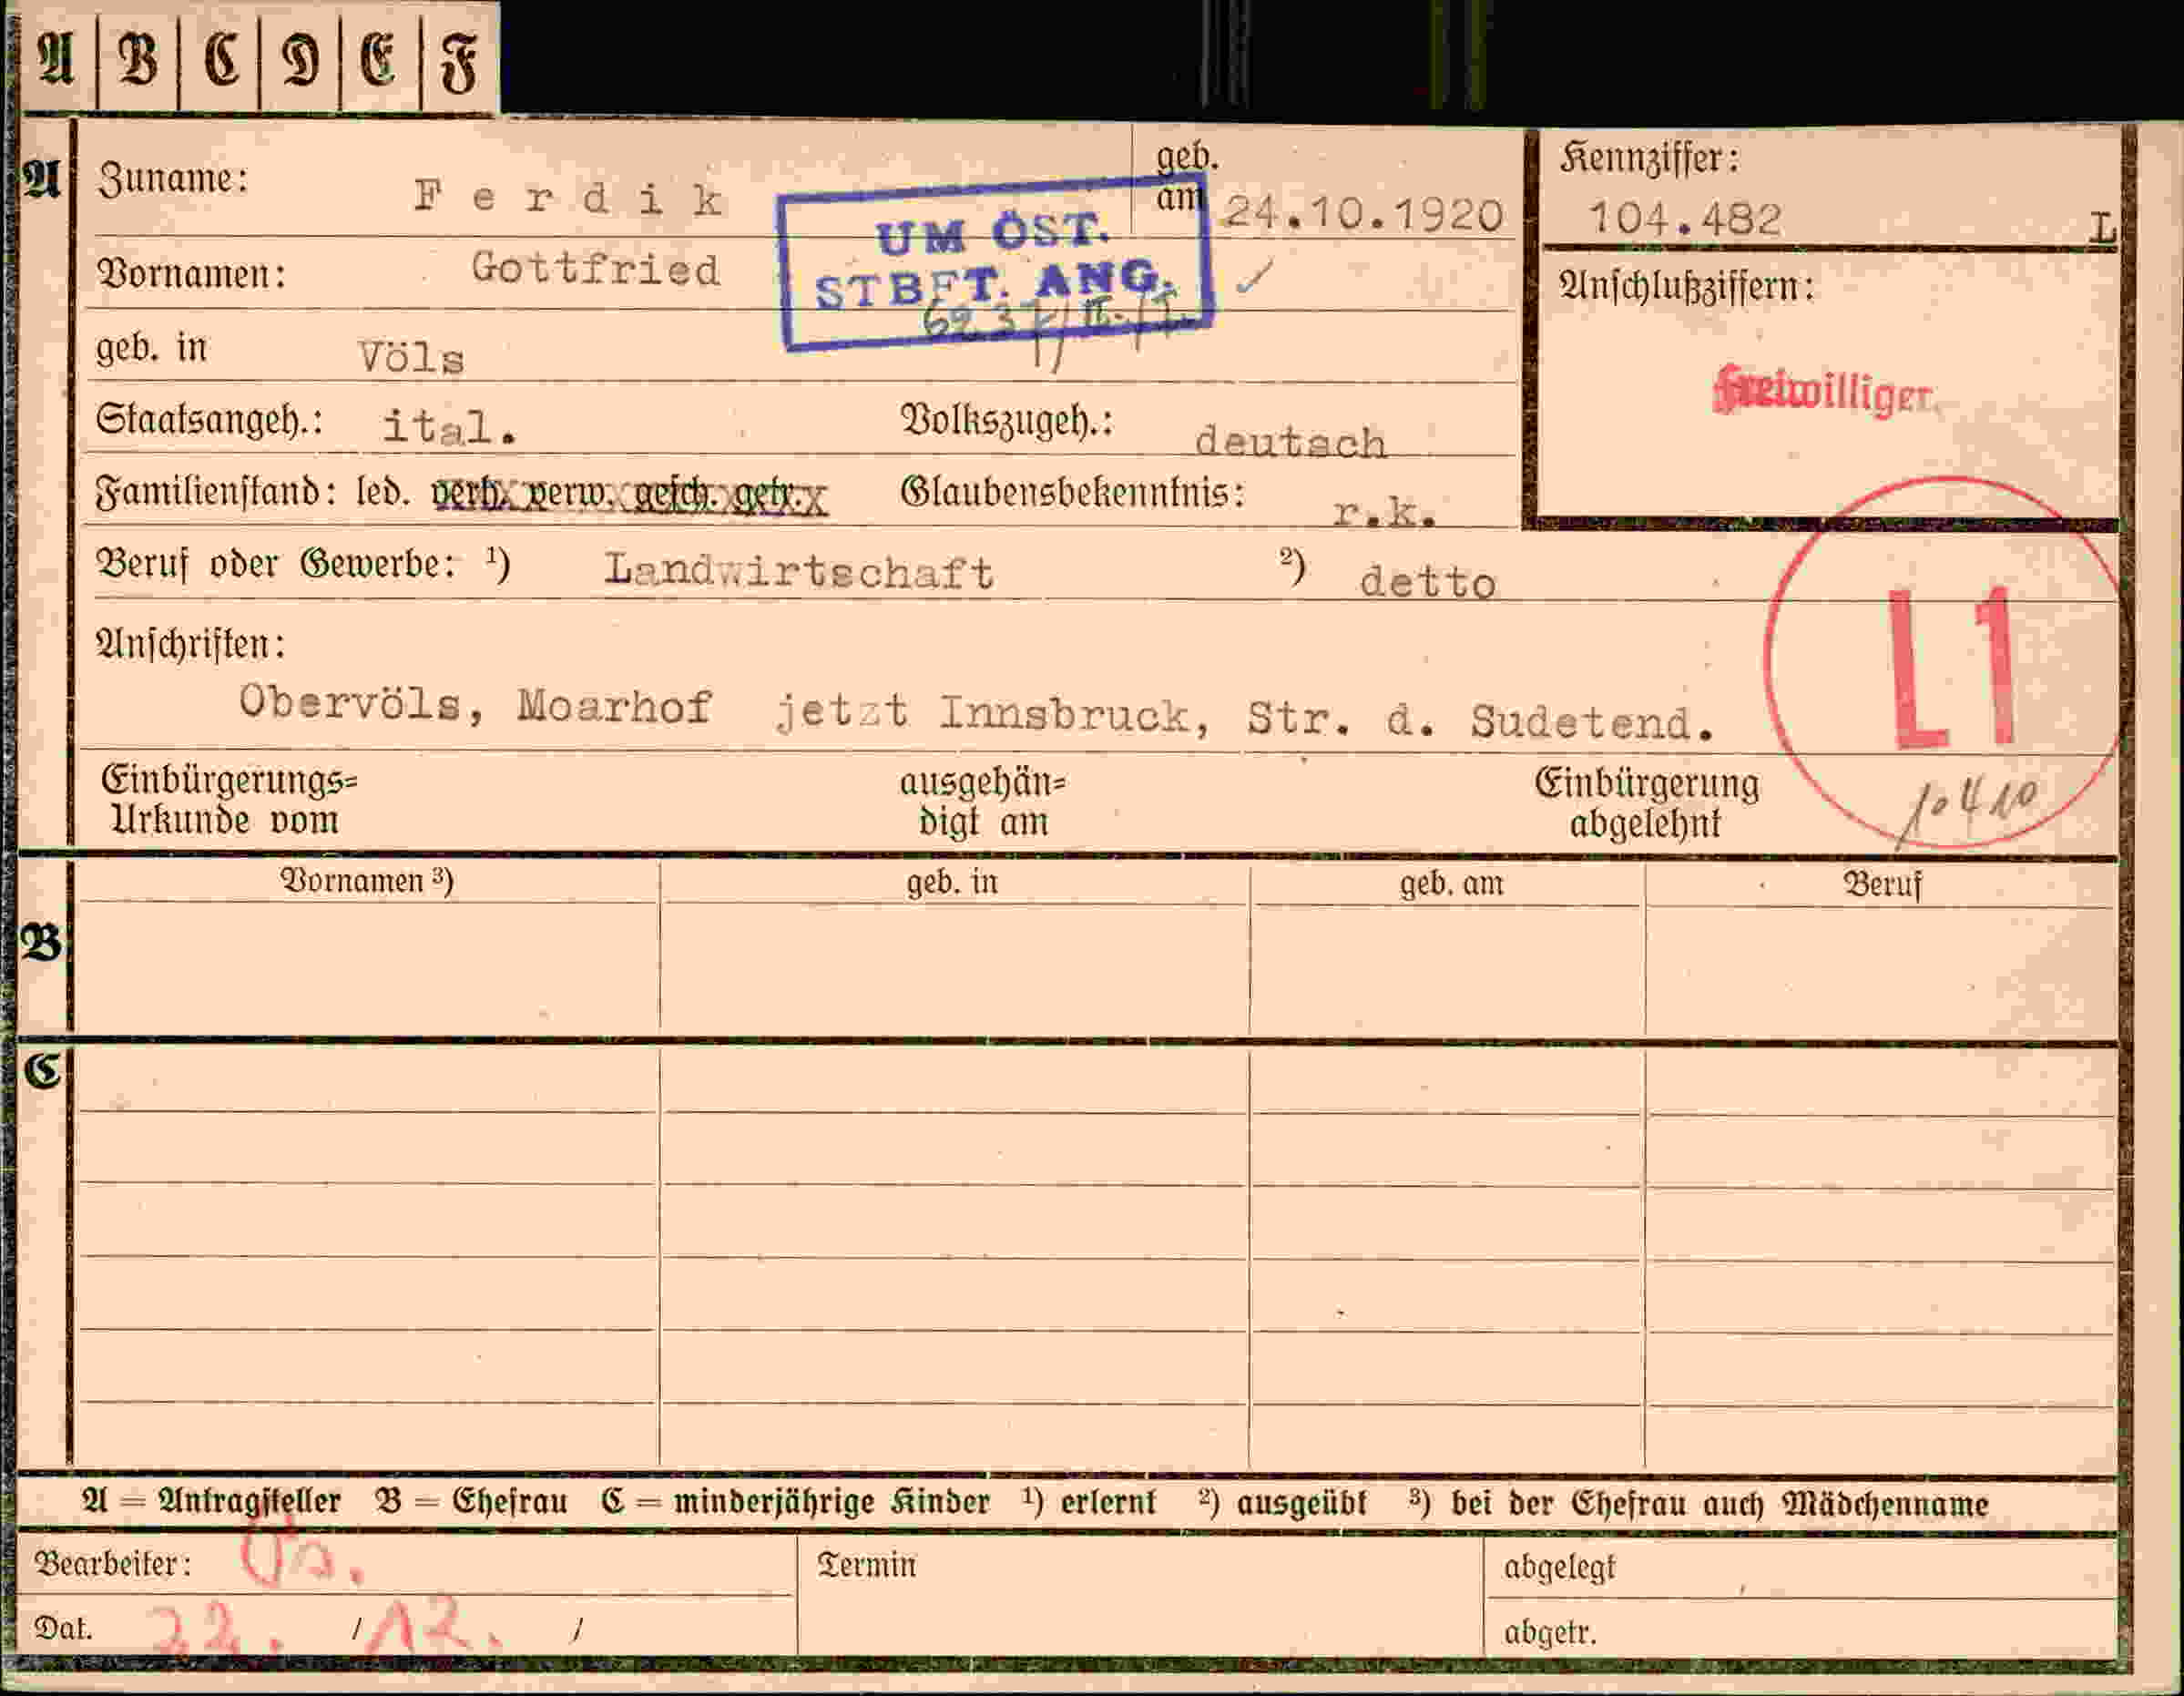 A B C D E F
A Zuname: Ferdik geb. am 24.10.1920 Kennziffer: 104.482 L
UM ÖST. STBFT. ANG.
Vornamen: Gottfried
Anschlußziffern:
geb. in Völs
Freiwilliger
Staatsangeh.: ital. Volkszugeh.: deutsch
Familienstand: led. verh. verw. gesch. getr. Glaubensbekenntnis: r.k.
Beruf oder Gewerbe: ¹) Landwirtschaft ²) detto
L1
Anschriften:
Obervöls, Moarhof jetzt Innsbruck, Str. d. Sudetend.
Einbürgerungs= ausgehän= Einbürgerung
Urkunde vom digt am abgelehnt
10410
Vornamen ³) geb. in geb. am Beruf
B
C
A = Antragsteller B = Ehefrau C = minderjährige Kinder ¹) erlernt ²) ausgeübt ³) bei der Ehefrau auch Mädchenname
Bearbeiter: Termin abgelegt
Dat. 22. / 12. / abgetr.